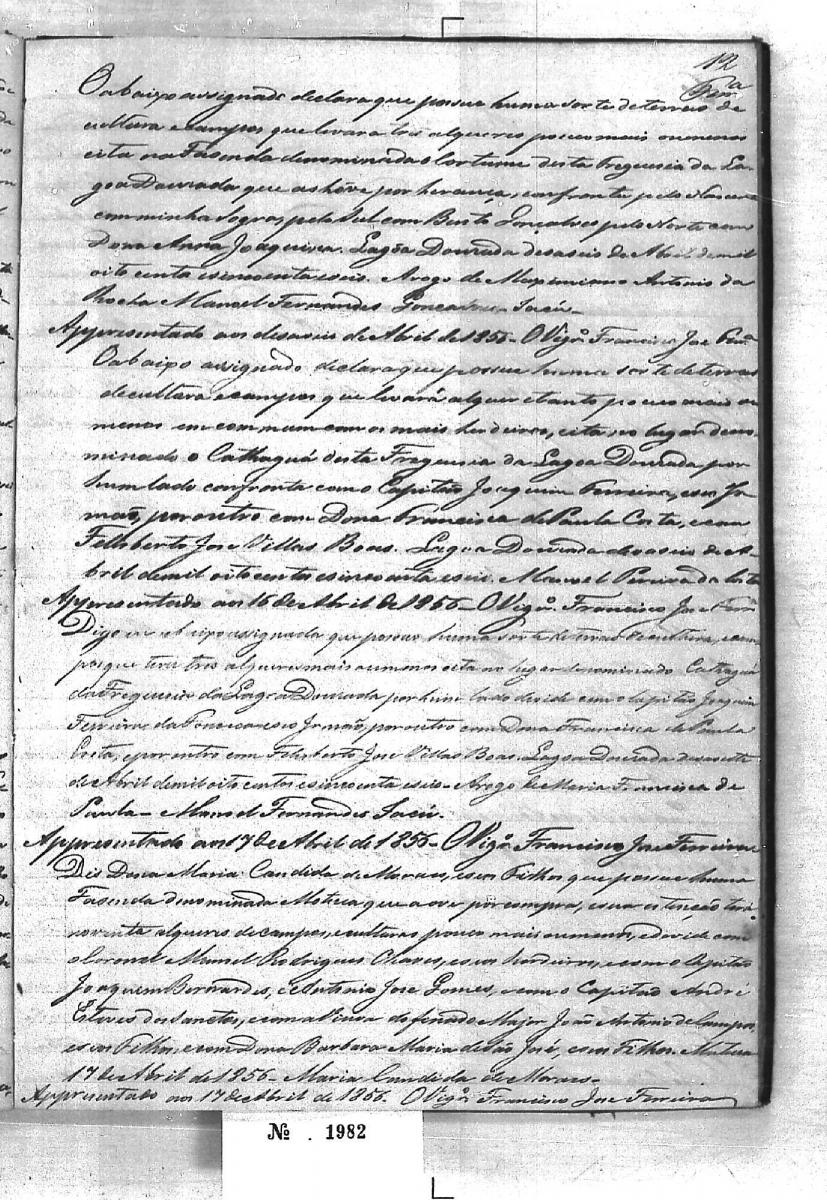 12
Ferrª
O abaixo assignado declara que possue huma sorte de terras de
cultura e campos que levara tres alqueres pouco mais ou menos
cita na Fasenda denominada o Cortume desta Freguesia da La-
goa Dourada que as hove por herança, confronta pelo Nascente
com minha Sogra, pelo Sul com Bento Gonçalves pelo Norte com
Dona Anna Joaquina. Lagôa Dourada desaseis de Abril de mil
oito centos e sincoenta e seis. Arogo de Maximiano Antonio da
Rocha Manoel Fernandes Gonçalves Jacú-
Appresentado aos desaseis de Abril de 1856- O Vigrº Francisco Jose Ferrª
O abaixo assignado declara que possue huma sorte de terras
de cultura e campos que levará alquer e tanto pouco mais ou
menos em commum com os mais herdeiros, cita no lugar deno-
minado o Cathaguá desta Freguesia da Lagoa Dourada por
hum lado confronta com o Capitão Joaquim Ferreira, e seu Ir-
mão, por outro com Dona Francisca de Paula Costa, e com
Felisberto Jose Villas Boas. Lagoa Dourada desaseis de A-
bril de mil oito centos e sincoenta e seis. Manoel Pereira da Costa
Appresentado aos 16 de Abril de 1856- O Vigrº. Francisco Jose Ferrª
Digo eu abaixo assignada que possuo huma sorte de terras de cultura, e cam-
pos que terá tres alqueres mais ou menos cita no lugar denominado Cathaguá
da Freguesia da Lagoa Dourada por hum lado devide com o Capitão Joaquim
Ferreira da Fonseca e seo Irmão, por outro com Dona Francisca de Paula
Costa, e por outro com Felisberto Jose Villas Boas. Lagoa Dourada desasete
de Abril de mil oito centos e sincoenta e seis- Arogo de Maria Francisca de
Paula- Manoel Fernandes Jacú.
Appresentado aos 17 de Abril de 1856- O Vigrº Francisco Jose Ferreira
Dis Dona Maria Candida de Moraes, e seos Filhos que possue huma
Fasenda denominada Mutuca que a ove por compra, e sua extenção terá
noventa alqueres de campos, e culturas pouco mais ou menos, e devide com
o Coronel Manoel Rodrigues Chaves, e seos herdeiros, e com o Capitão
Joaquim Bernardes, e Antonio Jose Gomes, e com o Capitão André
Esteves dos Santos, e com a Viuva do finado Major João Antonio de Campos,
e seos Filhos, e com Dona Barbara Maria de São José, e seos Filhos. Mutuca
17 de Abril de 1856- Maria Candida de Moraes-
Appresentado aos 17 de Abril de 1856. O Vigrº Francisco Jose Ferreira
Nº . 1982